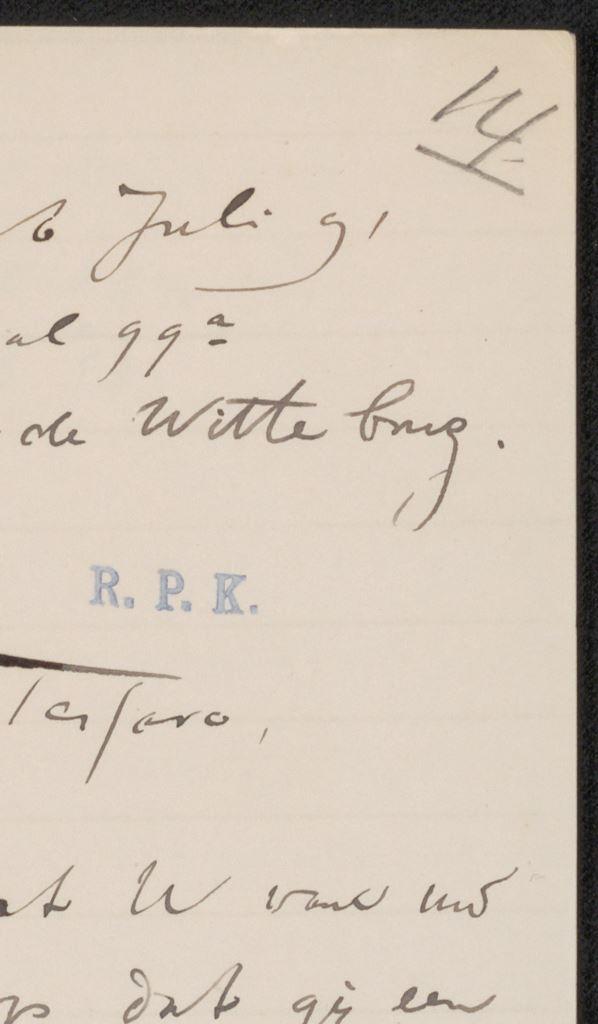 14
6 Juli 91
al 99a
de Witte brug.
R. P. K.
at U van uw
dat gij een